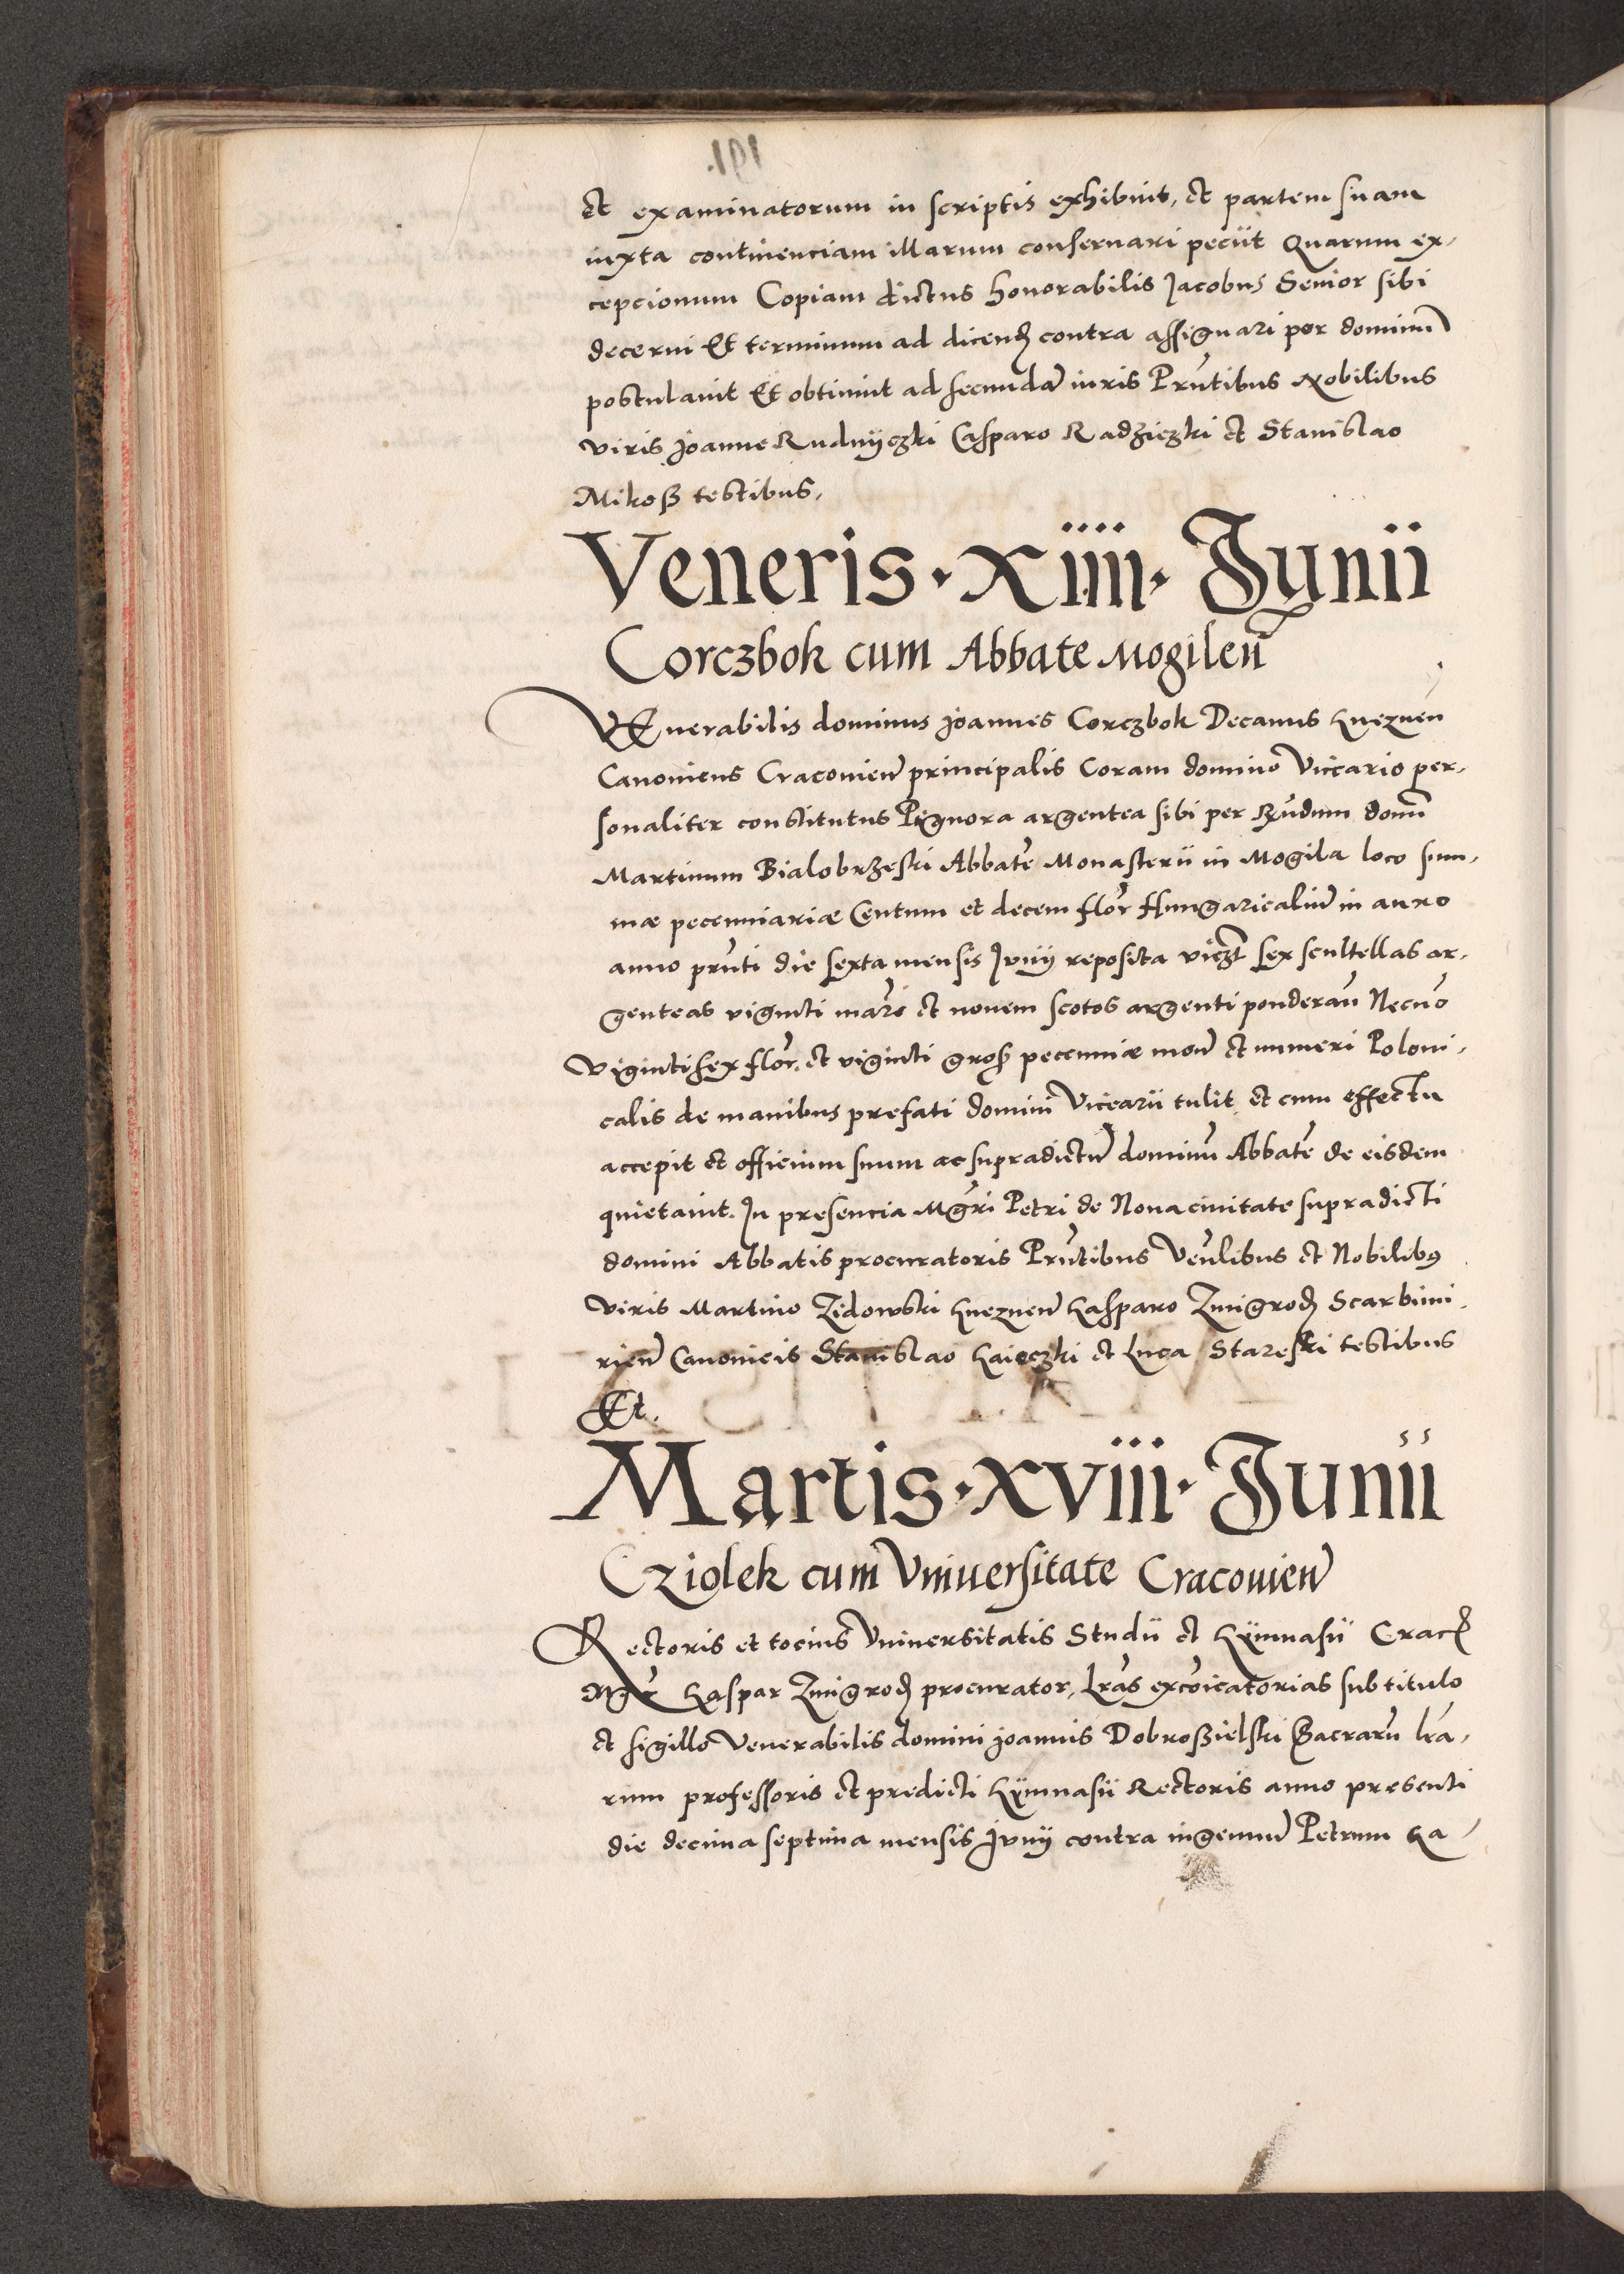 et examinatorum in scriptis exhibuit, et partem suam
iuxta continenciam illarum conseruari peciit Quarum ex,
cepcionum Copiam dictus honorabilis Jacobus Senior sibi
decerni Et terminum ad dicend contra assignari per dominũ
postulauit Et obtinuit ad secundã iuris Pñtibus Nobilibus
viris Joanne Rudnÿczki Casparo Radziczki et Stanislao
Mikoß testibus,
Veneris · xiiii · Junii
Corczbok cum Abbate Mogileñ
VEnerabilis dominus Joannes Corczbok Decanus Gnezneñ
Canonicus Cracovieñ principalis Coram domino Vicario per,
sonaliter constitutus Pignora argentea sibi per Rñdum domũ
Martinum Bialobrzeski Abbatẽ Monasterii in Mogila loco sum,
mæ pecuniariæ Centum et decem flor̃ Hungaricaliũ in auro
anno pñti die sexta mensis Junÿ reposita viczt sex scultellas ar,
genteas viginti marc̃ et nouem scotos argenti ponderañ Necnõ
Vigintisex flor̃. et viginti groß pecuniæ moñ et numeri Poloni,
calis de manibus prefati domini Vicearii tulit et cum effectu
accepit et officium suum ac supradictũ dominũ Abbatẽ de eisdem
quietauit. In presencia Mgr̃i Petri de Noua ciuitate supradicti
domini Abbatis procuratoris Pñtibus Veñlibus et Nobilibꝰ
viris Martino Zidowski Gnezneñ Gasparo Zmigrod Scarbimi,
rieñ Canonicis Stanislao Gaieczki et Luca Stareski testibus
Et.
Martis · xviii · Junii
Cziolek cum Vniuersitate Cracouieñ
Rectoris et tocius Vniuersitatis Studii et Gÿmnasii Crac
Mgr̃ Gaspar Zmigrod procurator, lr̃as excõicatorias sub titulo
et sigillo Venerabilis domini Joannis Dobroßielski Sacrarũ lr̃a,
rum professoris et predicti Gÿmnasii Rectoris anno presenti
die decima septima mensis Junÿ contra ingenuũ Petrum Ga,